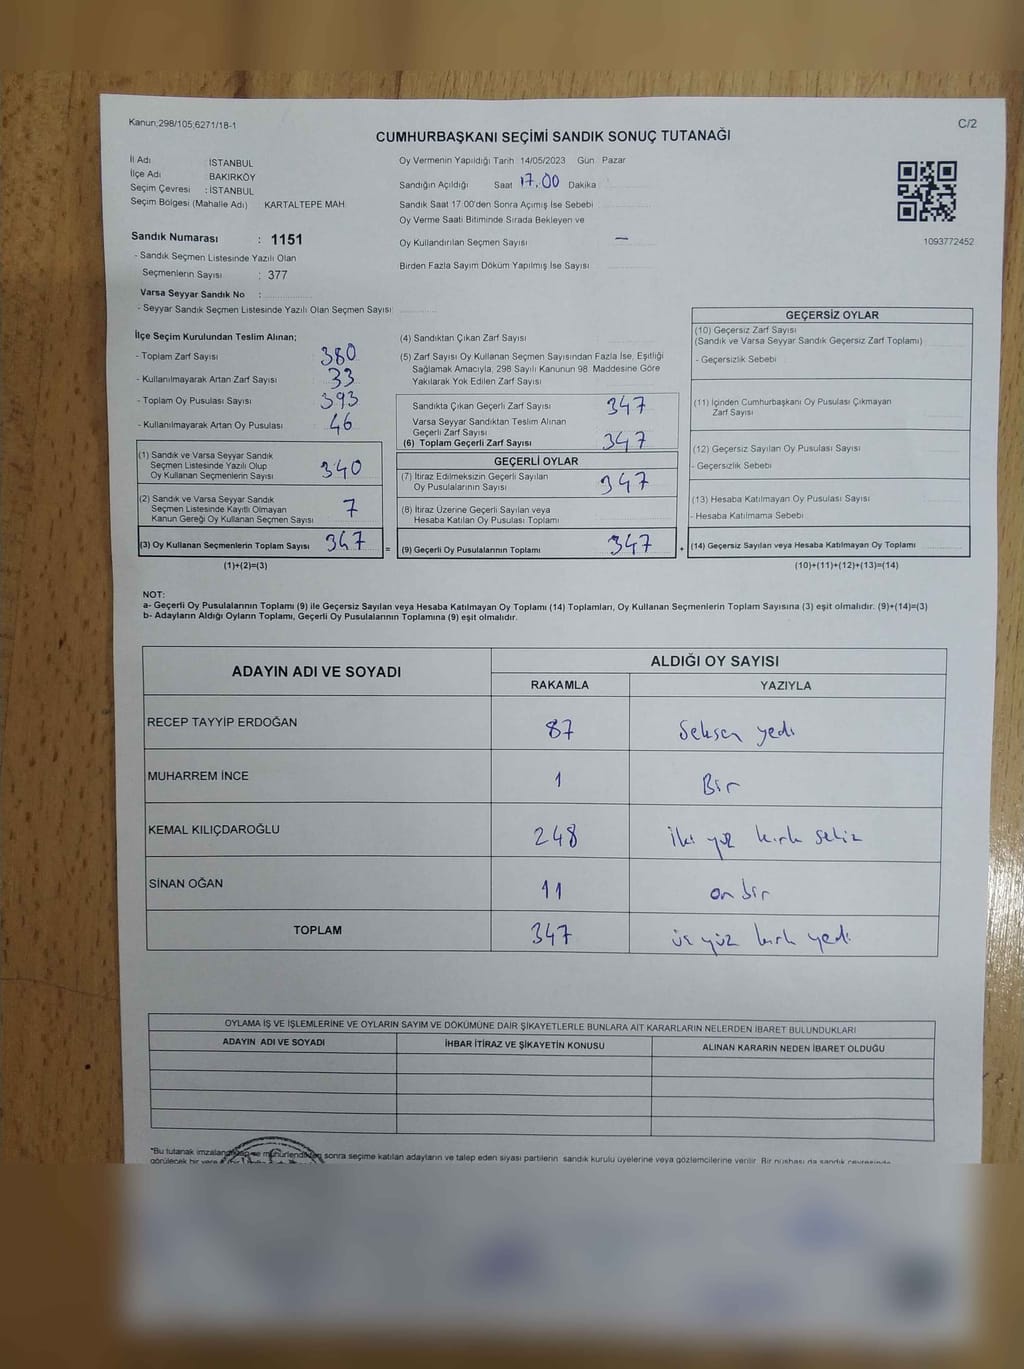 Kanun;298/105;6271/18-1
C/2
CUMHURBAŞKANI SEÇİMİ SANDIK SONUÇ TUTANAĞI
İl Adı İSTANBUL
İlçe Adı BAKIRKÖY
Seçim Çevresi : İSTANBUL
Seçim Bölgesi (Mahalle Adı) KARTALTEPE MAH.
Sandık Numarası : 1151
- Sandık Seçmen Listesinde Yazılı Olan
Seçmenlerin Sayısı : 377
Varsa Seyyar Sandık No :
- Seyyar Sandık Seçmen Listesinde Yazılı Olan Seçmen Sayısı
Oy Vermenin Yapıldığı Tarih 14/05/2023 Gün Pazar
Sandığın Açıldığı Saat 17.00 Dakika
Sandık Saat 17:00'den Sonra Açımış İse Sebebi
Oy Verme Saati Bitiminde Sırada Bekleyen ve
Oy Kullandırılan Seçmen Sayısı —
Birden Fazla Sayım Döküm Yapılmış İse Sayısı
1093772452
İlçe Seçim Kurulundan Teslim Alınan;
- Toplam Zarf Sayısı 380
- Kullanılmayarak Artan Zarf Sayısı 33
- Toplam Oy Pusulası Sayısı 393
- Kullanılmayarak Artan Oy Pusulası 46
(1) Sandık ve Varsa Seyyar Sandık
Seçmen Listesinde Yazılı Olup
Oy Kullanan Seçmenlerin Sayısı 340
(2) Sandık ve Varsa Seyyar Sandık
Seçmen Listesinde Kayıtlı Olmayan
Kanun Gereği Oy Kullanan Seçmen Sayısı 7
(3) Oy Kullanan Seçmenlerin Toplam Sayısı 347 =
(1)+(2)=(3)
(4) Sandıktan Çıkan Zarf Sayısı
(5) Zarf Sayısı Oy Kullanan Seçmen Sayısından Fazla İse, Eşitliği
Sağlamak Amacıyla, 298 Sayılı Kanunun 98. Maddesine Göre
Yakılarak Yok Edilen Zarf Sayısı
Sandıkta Çıkan Geçerli Zarf Sayısı 347
Varsa Seyyar Sandıktan Teslim Alınan
Geçerli Zarf Sayısı
(6) Toplam Geçerli Zarf Sayısı 347
GEÇERLİ OYLAR
(7) İtiraz Edilmeksizin Geçerli Sayılan
Oy Pusulalarının Sayısı 347
(8) İtiraz Üzerine Geçerli Sayılan veya
Hesaba Katılan Oy Pusulası Toplamı
(9) Geçerli Oy Pusulalarının Toplamı 347 +
GEÇERSİZ OYLAR
(10) Geçersiz Zarf Sayısı
(Sandık ve Varsa Seyyar Sandık Geçersiz Zarf Toplamı)
- Geçersizlik Sebebi
(11) İçinden Cumhurbaşkanı Oy Pusulası Çıkmayan
Zarf Sayısı
(12) Geçersiz Sayılan Oy Pusulası Sayısı
- Geçersizlik Sebebi
(13) Hesaba Katılmayan Oy Pusulası Sayısı
- Hesaba Katılmama Sebebi
(14) Geçersiz Sayılan veya Hesaba Katılmayan Oy Toplamı
(10)+(11)+(12)+(13)=(14)
NOT:
a- Geçerli Oy Pusulalarının Toplamı (9) ile Geçersiz Sayılan veya Hesaba Katılmayan Oy Toplamı (14) Toplamları, Oy Kullanan Seçmenlerin Toplam Sayısına (3) eşit olmalıdır. (9)+(14)=(3)
b- Adayların Aldığı Oyların Toplamı, Geçerli Oy Pusulalarının Toplamına (9) eşit olmalıdır.
ADAYIN ADI VE SOYADI ALDIĞI OY SAYISI
RAKAMLA YAZIYLA
RECEP TAYYİP ERDOĞAN 87 Seksen yedi
MUHARREM İNCE 1 Bir
KEMAL KILIÇDAROĞLU 248 İki yüz kırk sekiz
SİNAN OĞAN 11 on bir
TOPLAM 347 üç yüz kırk yedi
OYLAMA İŞ VE İŞLEMLERİNE VE OYLARIN SAYIM VE DÖKÜMÜNE DAİR ŞİKAYETLERLE BUNLARA AİT KARARLARIN NELERDEN İBARET BULUNDUKLARI
ADAYIN ADI VE SOYADI İHBAR İTİRAZ VE ŞİKAYETİN KONUSU ALINAN KARARIN NEDEN İBARET OLDUĞU
*Bu tutanak imzalandıktan ve mühürlendikten sonra seçime katılan adayların ve talep eden siyasi partilerin sandık kurulu üyelerine veya gözlemcilerine verilir. Bir nüshası da sandık çevresinde
görülecek bir yere